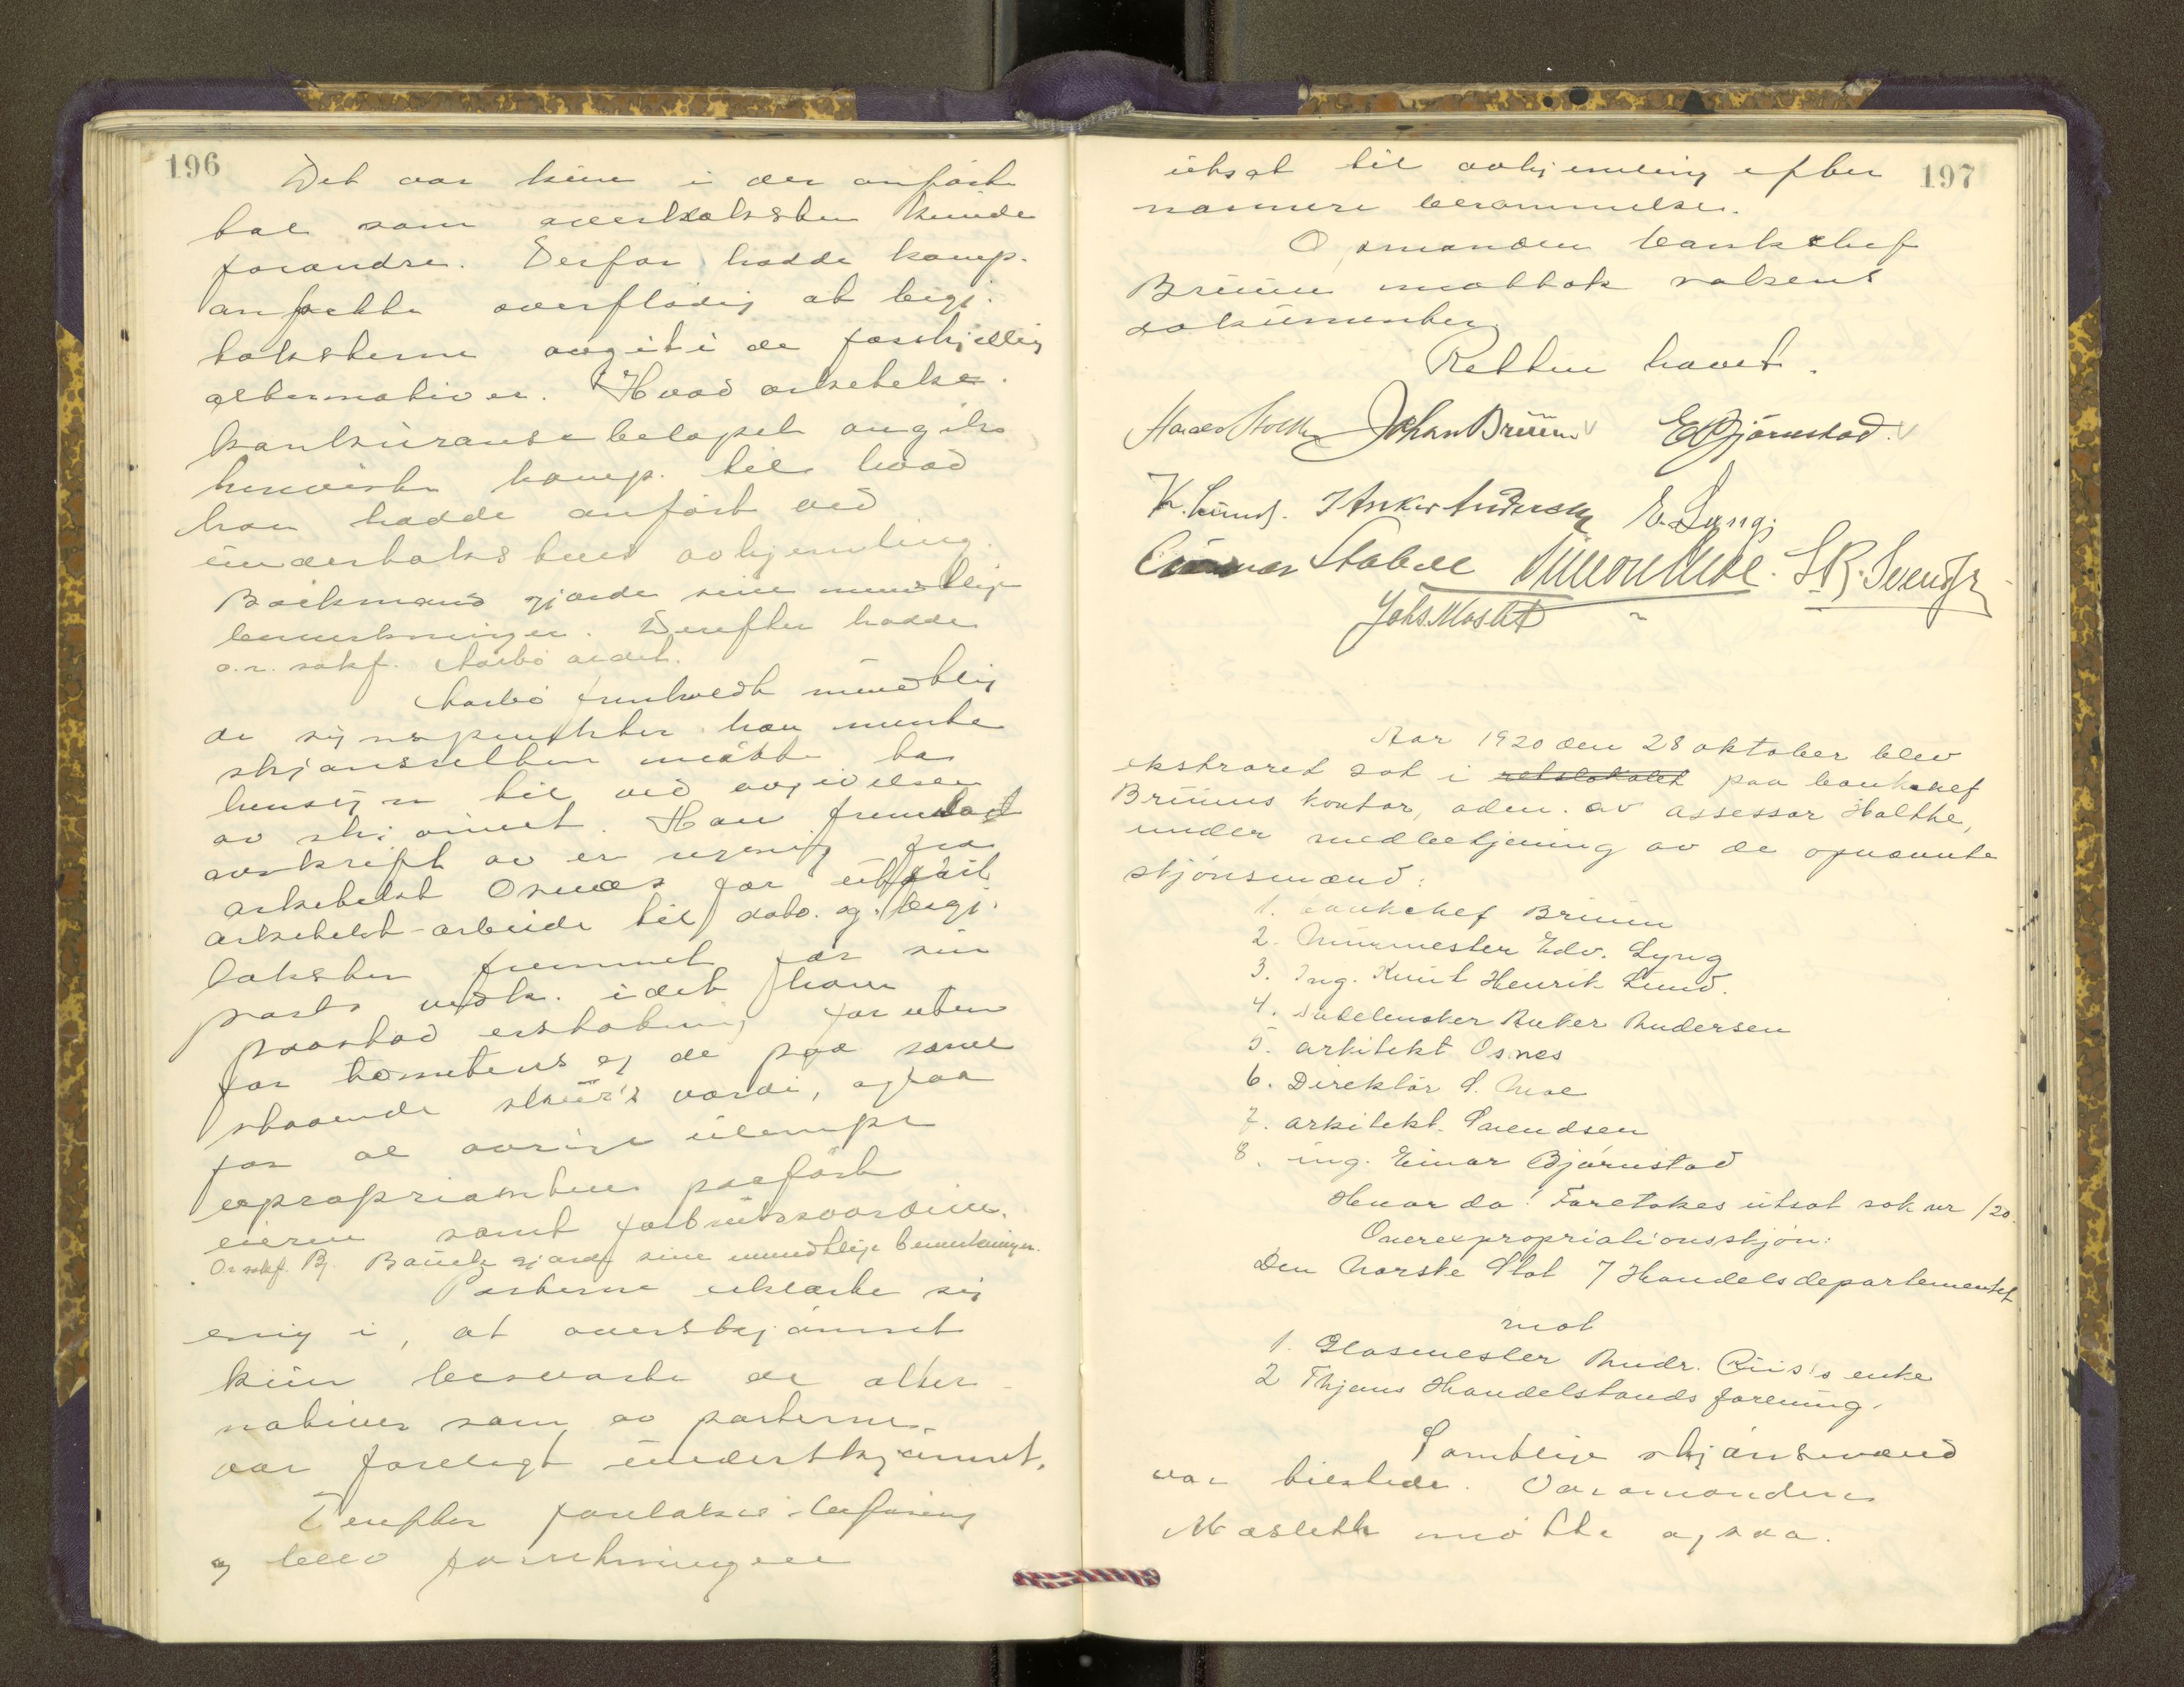 196
Det var kun i der anførte
tal som overtaksten kunde
forandre. Derfor hadde komp.
ansett overflødig at begj.
taksterne avgit i de forskjellig
alternativer. Hvad arkitekt-
konkurransebeløpet angik
henviste komp. til hvad
han hadde anført ved
undertakstens avhjemling.
Backmand gjorde sine mundtlige
bemerkninger. Derefter hadde
o.r. sakf. Aarbo ordet.
Aarbo fremholdt mundtlig
de synspunkter han mente
skjønsretten måtte ta
hensyn til ved avgivelsen
av skjønnet. Han fremla
avskrift av en regning fra
arkitekt Osnes for utført
arkitekt-arbeide til dato. og begj.
taksten fremmet for sin
parts vedk. idet han
paastod erstatning foruten
for tomtens og de paa samme
staaende skur's værdi, ogsaa
for al øvrig ulempe
expropriasjonen paaførte
eieren samt forbrugsværdien.
O.r. sakf. Bj. gjorde sine mundtlige bemerkninger.
Parterne erklærte sig
enig i, at overskjønnet
kun besvarte de alter-
nativer som av parterne
var forelagt underskjønnet.
Derefter foretakes befaring
og blev forretningen
197
utsat til avhjemling efter
nærmere berammelse.
Ormanden bankchef
Bruun mottok saksens
dokumenter
Retten hævet.
Johan Bruun E Bjørnstad.
K. Lund. J Anker Andersen E. Lyng.
Gunnar Stabell Simon Moe. S.R. Svendsen
Johs Masleth
Aar 1920 den 28 oktober blev
ekstraret sat i retslokalet paa bankchef
Bruuns kontor, adm. av assessor Holthe,
under medbetjening av de opnævnte
skjønsmænd:
1. bankchef Bruun
2. Murmester Edv. Lyng
3. Ing. Knut Henrik Lund.
4. Anker Andersen
5. arkitekt Osnes
6. Direktør S. Moe
7. arkitekt Svendsen
8. ing. Einar Bjørnstad
Hvor da! Foretakes utsat sak nr /20.
Overexpropriationsskjøn:
Den Norske Stat / Handelsdepartementet
mot
1. Glasmester Andr. Riis's enke
2 Thjems Handelstands forening.
Samtlige skjønsmænd
var tilstede. Varamanden
Masleth møtte ogsaa.